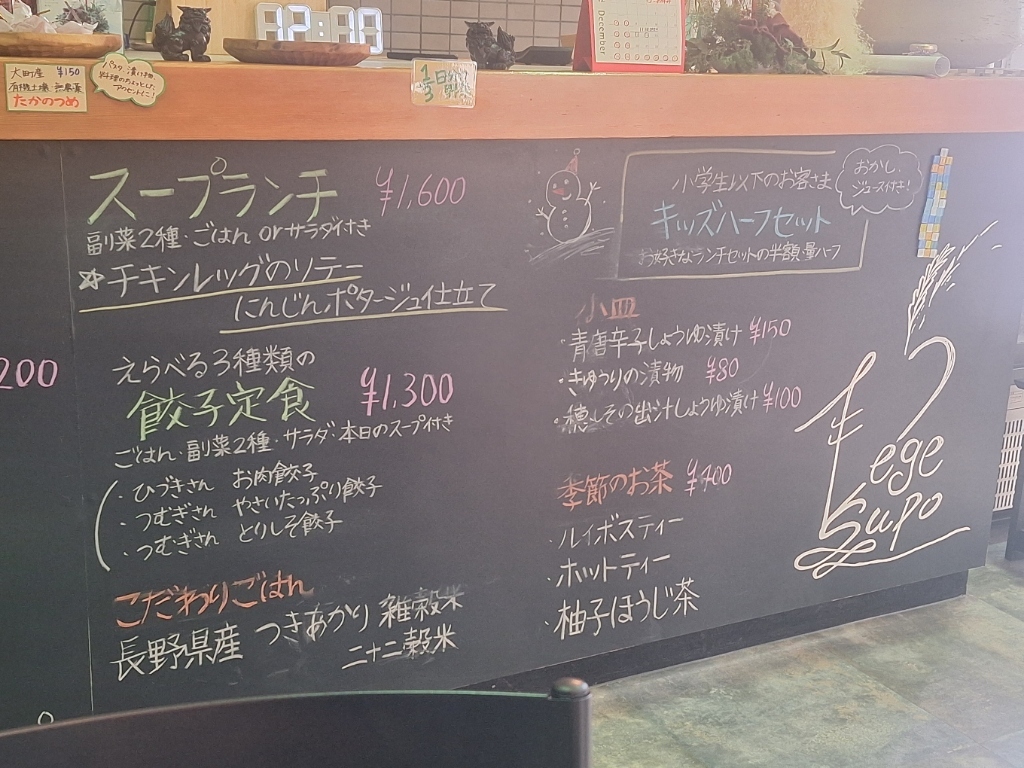 大町産 ¥150
有機土壌 無農薬
たかのつめ
パスタ、漬け物
料理の
アクセントに!
December
スープランチ ¥1,600
副菜2種・ごはん orサラダ付き
☆チキンレッグのソテー
にんじんポタージュ仕立て
200
えらべる3種類の
餃子定食 ¥1,300
ごはん・副菜2種・サラダ・本日のスープ付き
・ひづきさん お肉餃子
・つむぎさん やさいたっぷり餃子
・つむぎさん とりしそ餃子
こだわりごはん
長野県産 つきあかり 雑穀米
二十二穀米
小学生以下のお客さま
キッズハーフセット
お好きなランチセットの半額・量ハーフ
おかし、
ジュース付き!
小皿
・青唐辛子しょうゆ漬け ¥150
・きゅうりの漬物 ¥80
・穂しその出汁しょうゆ漬け ¥100
季節のお茶 ¥400
・ルイボスティー
・ホットティー
・柚子ほうじ茶
Vege
Supo